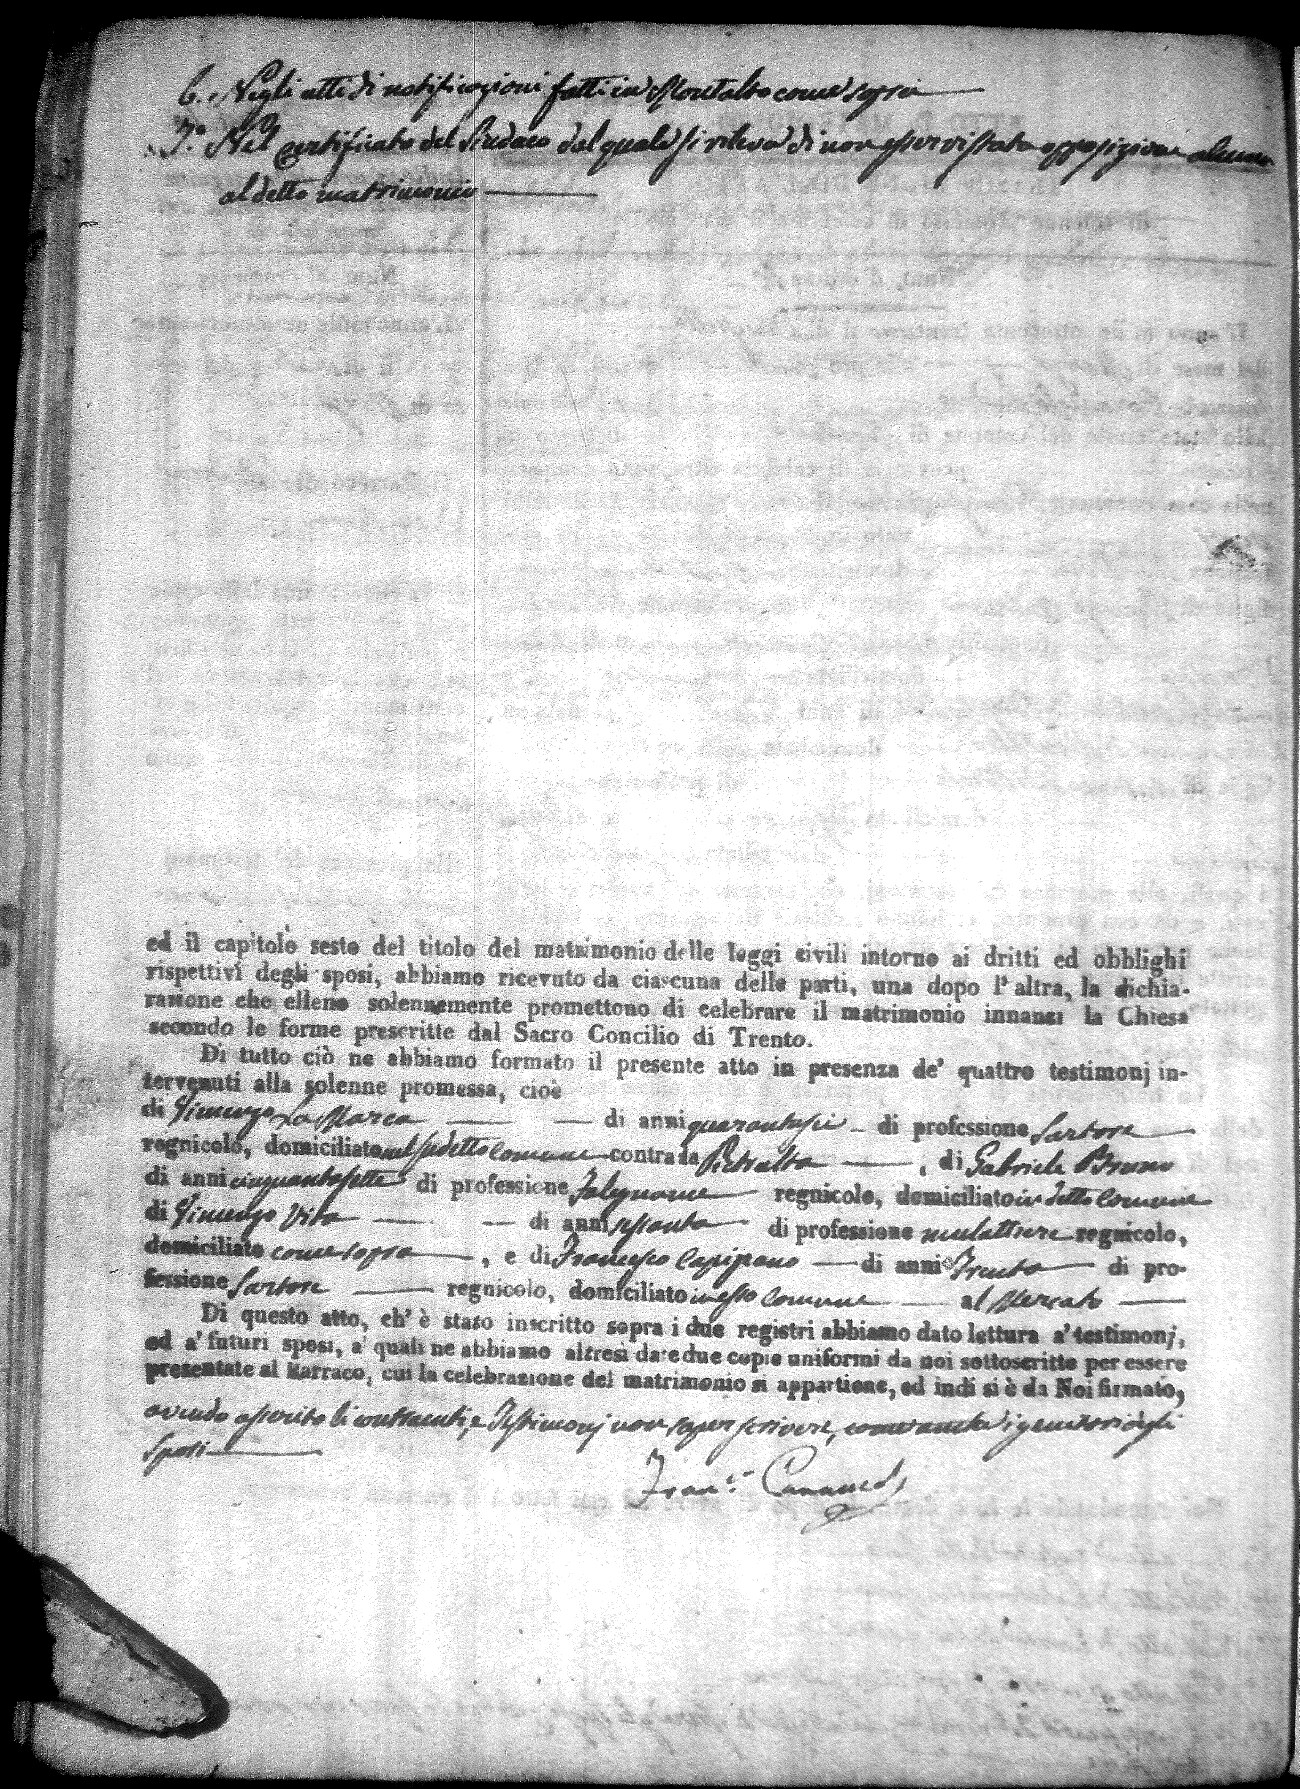 6.° Negli atti di notificazioni fatti in Montalto come sopra
7.° Nel certificato del Sindaco dal quale si rileva di non esservi stata opposizione alcuna
al detto matrimonio
ed il capitolo sesto del titolo del matrimonio delle leggi civili intorno ai dritti ed obblighi
rispettivi degli sposi, abbiamo ricevuto da ciascuna delle parti, una dopo l'altra, la dichia-
razione che elleno solennemente promettono di celebrare il matrimonio innanzi la Chiesa
secondo le forme prescritte dal Sacro Concilio di Trento.
Di tutto ciò ne abbiamo formato il presente atto in presenza de' quattro testimonj in-
tervenuti alla solenne promessa, cioè
di Vincenzo La Marca di anni quarantasei di professione Sartore
regnicolo, domiciliato nel sudetto Comune contrada Pietralta, di Gabriele Bruno
di anni cinquantasette di professione Falegname regnicolo, domiciliato in detto Comune
di Vincenzo Vita di anni sessanta di professione mulattiere regnicolo,
domiciliato come sopra, e di Francesco Capizano di anni Trenta di pro-
fessione Sartore regnicolo, domiciliato in esso Comune al Mercato
Di questo atto, ch' è stato inscritto sopra i due registri abbiamo dato lettura a' testimonj,
ed a' futuri sposi, a' quali ne abbiamo altresì date due copie uniformi da noi sottoscritte per essere
presentate al Parraco, cui la celebrazione del matrimonio si appartiene, ed indi si è da Noi firmato,
avendo asserito li contraenti, e Testimonj non saper scrivere, come anche i genitori degli
Sposi
Fran.co